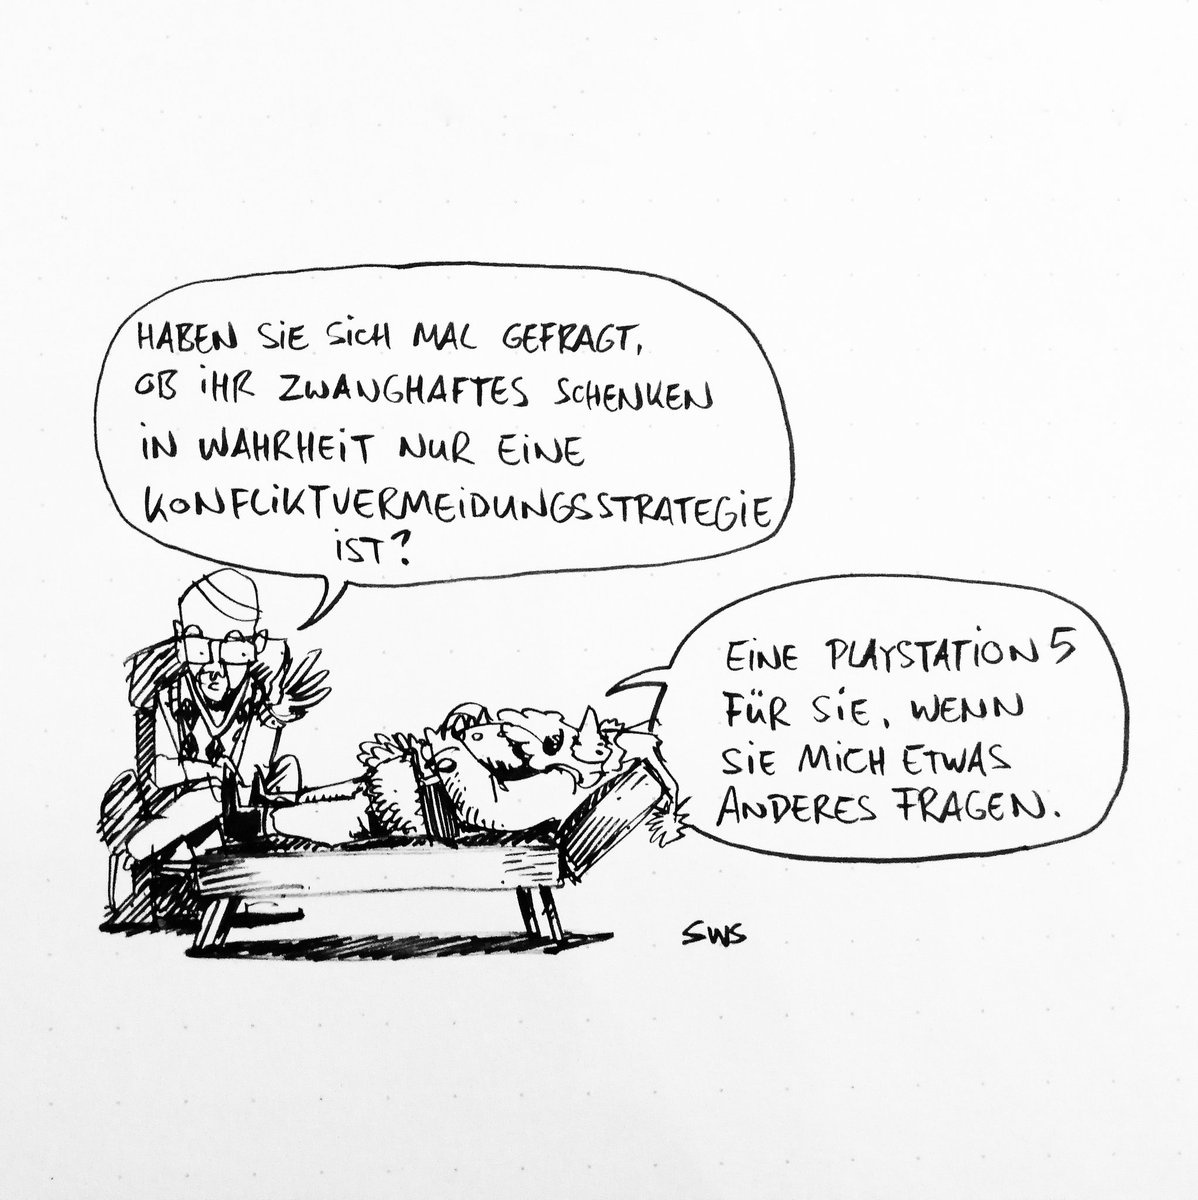 HABEN SIE SICH MAL GEFRAGT,
OB IHR ZWANGHAFTES SCHENKEN
IN WAHRHEIT NUR EINE
KONFLIKTVERMEIDUNGSSTRATEGIE
IST?
EINE PLAYSTATION 5
FÜR SIE, WENN
SIE MICH ETWAS
ANDERES FRAGEN.
SWS